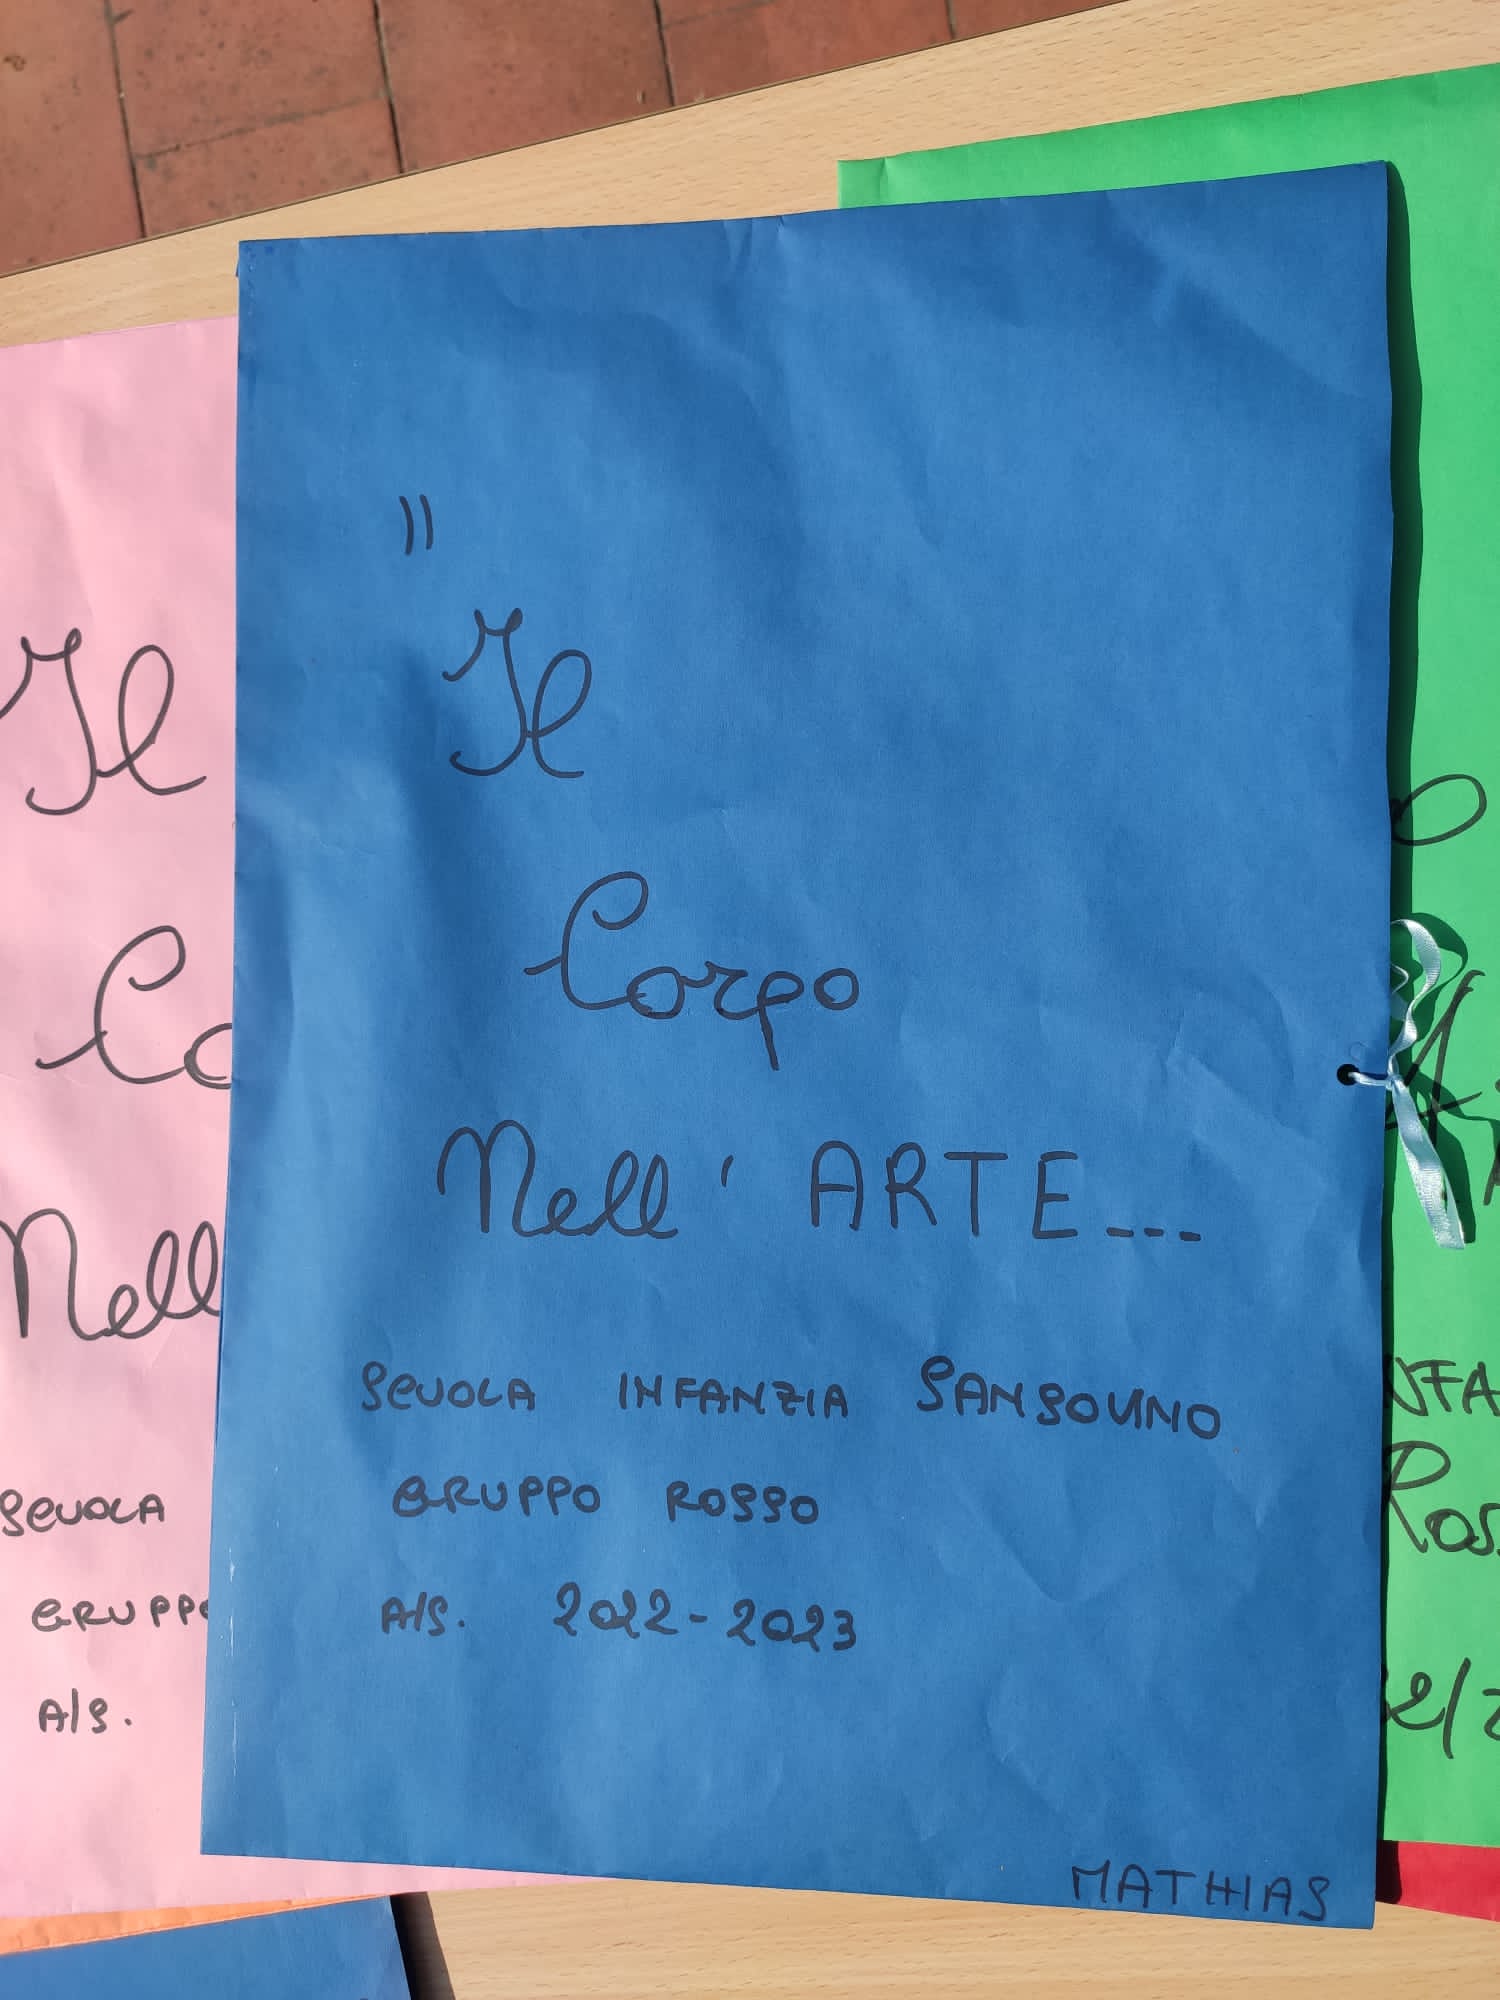 "
Il
Corpo
Nell' ARTE...
SCUOLA INFANZIA SANSOVINO
GRUPPO ROSSO
A/S. 2022-2023
MATHIAS
Il
Nell
SCUOLA
A/S.